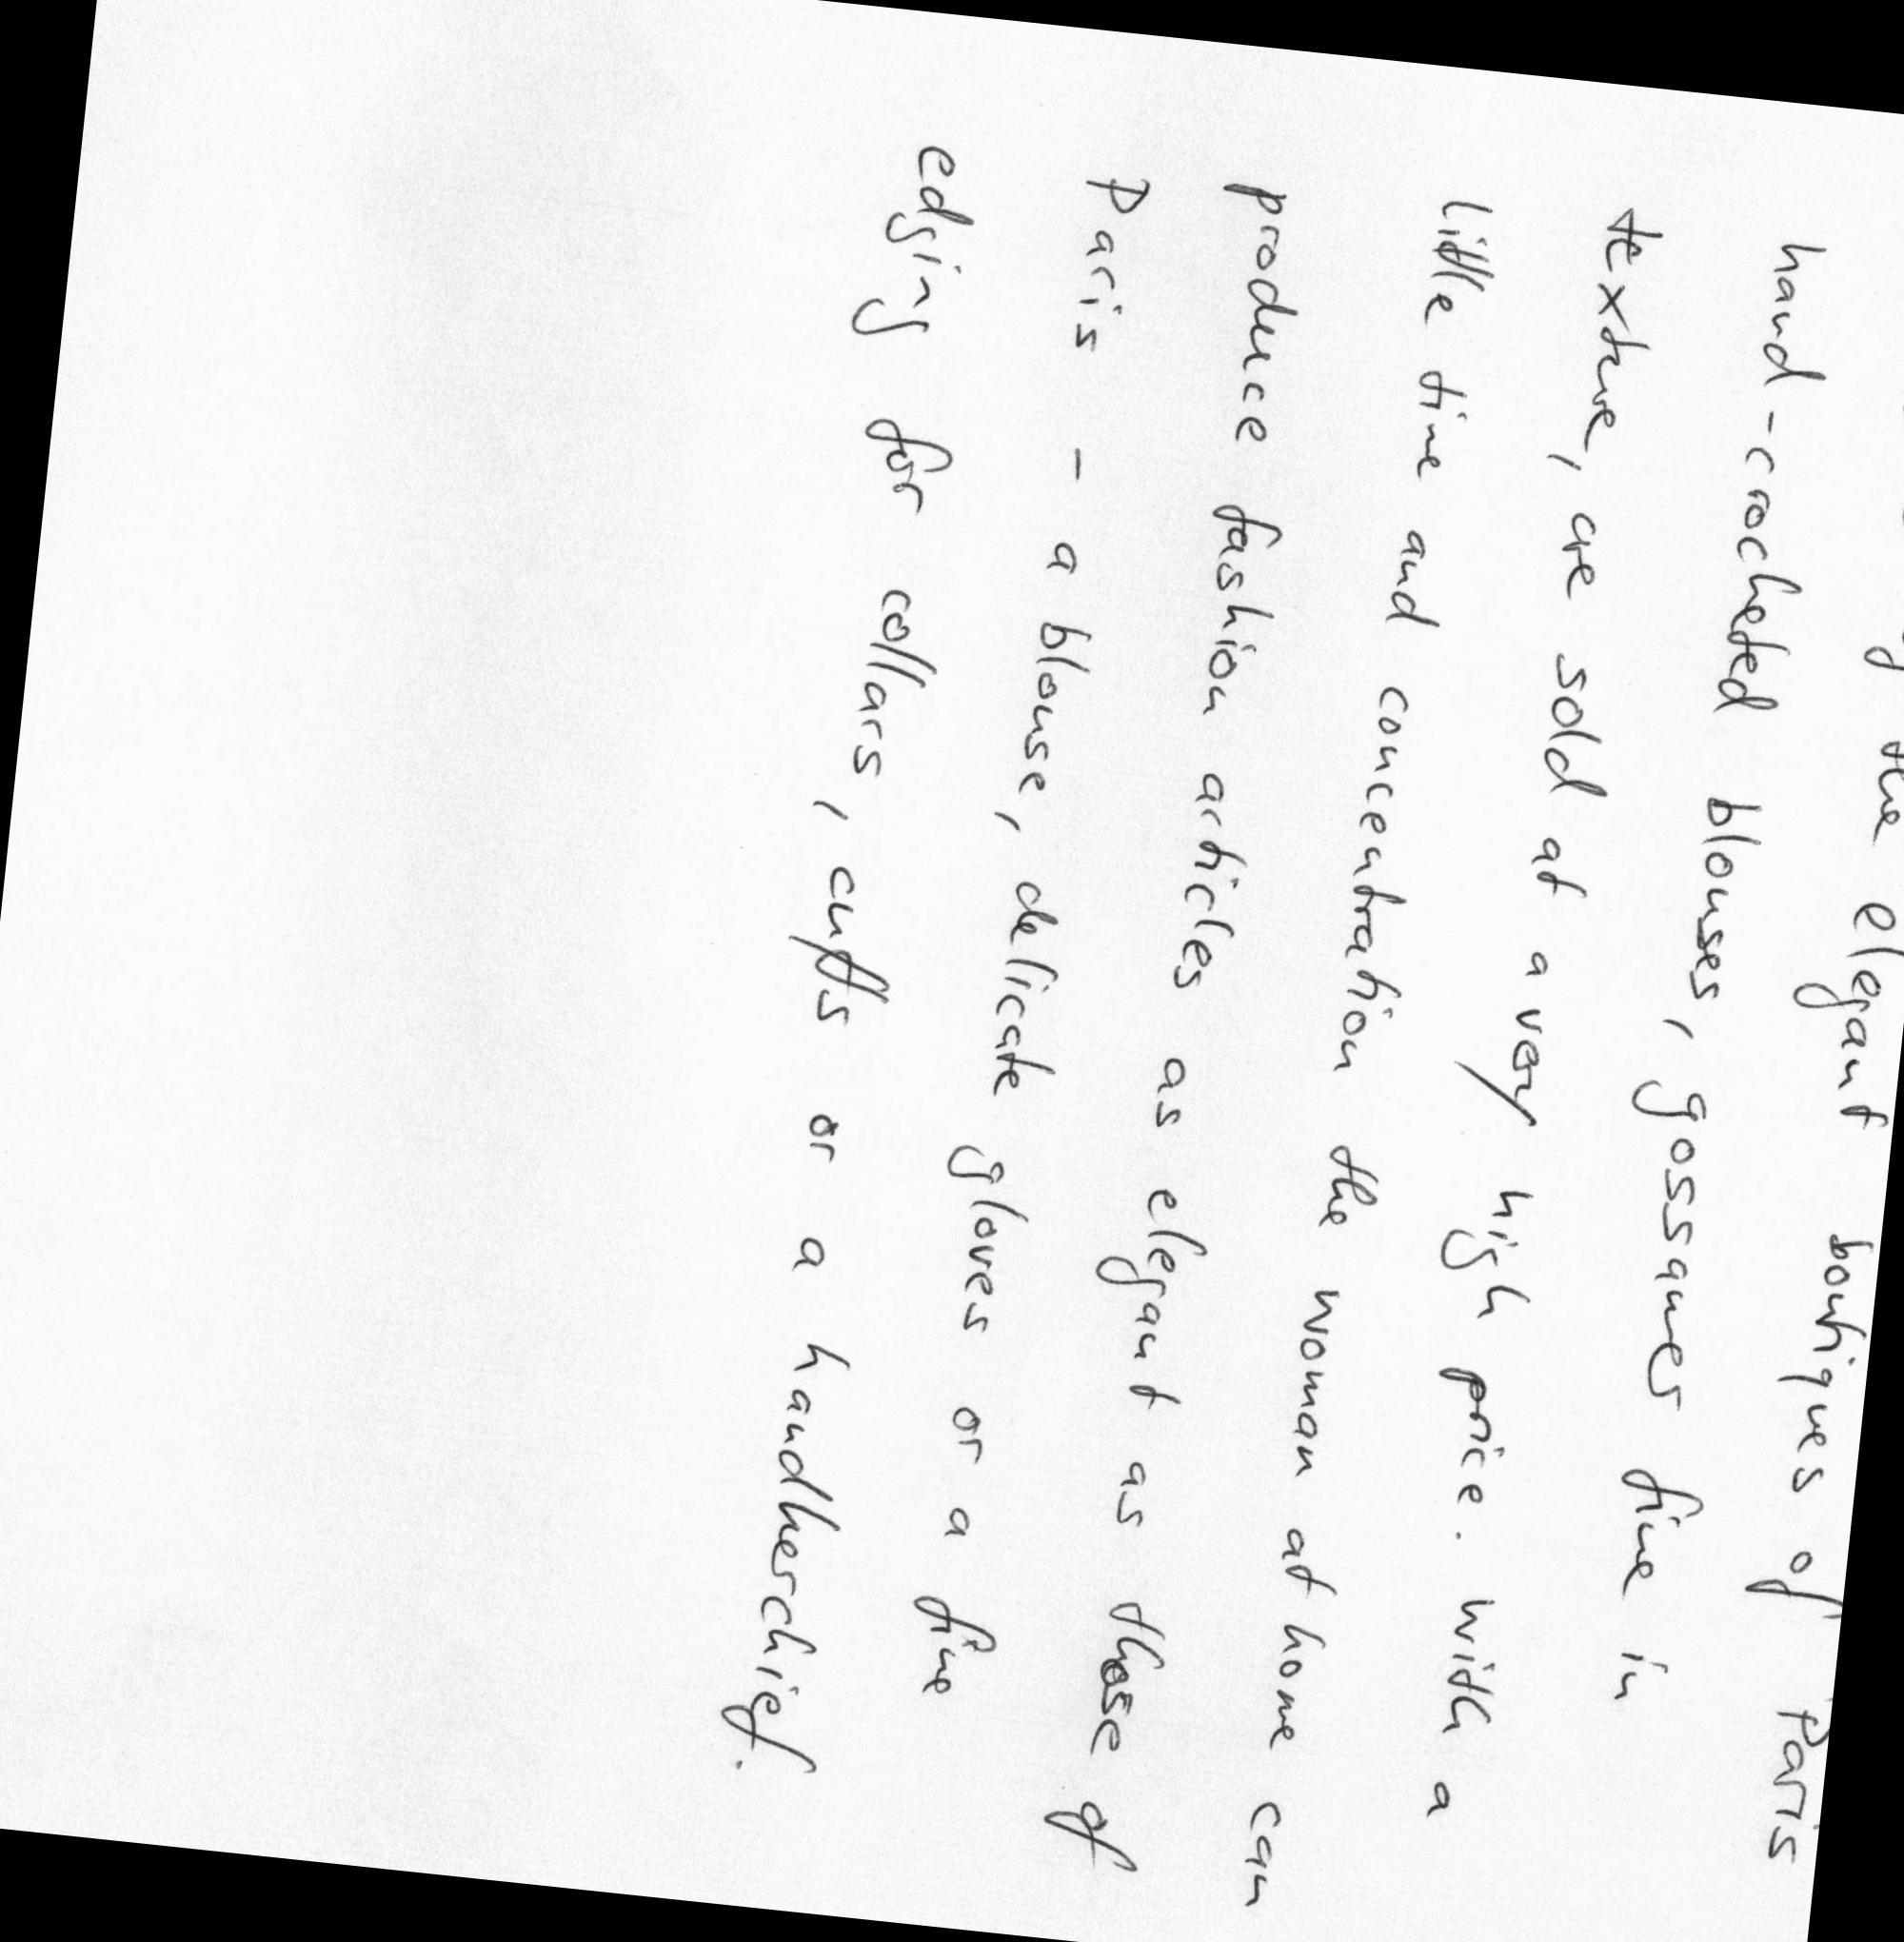 the elegant boutiques of Paris
hand-crocheted blouses, gossamer fine in
texture, are sold at a very high price. With a
little time and concentration the woman at home can
produce fashion articles as elegant as those of
Paris - a blouse, delicate gloves or a fine
edging for collars, cuffs or a handkerchief.